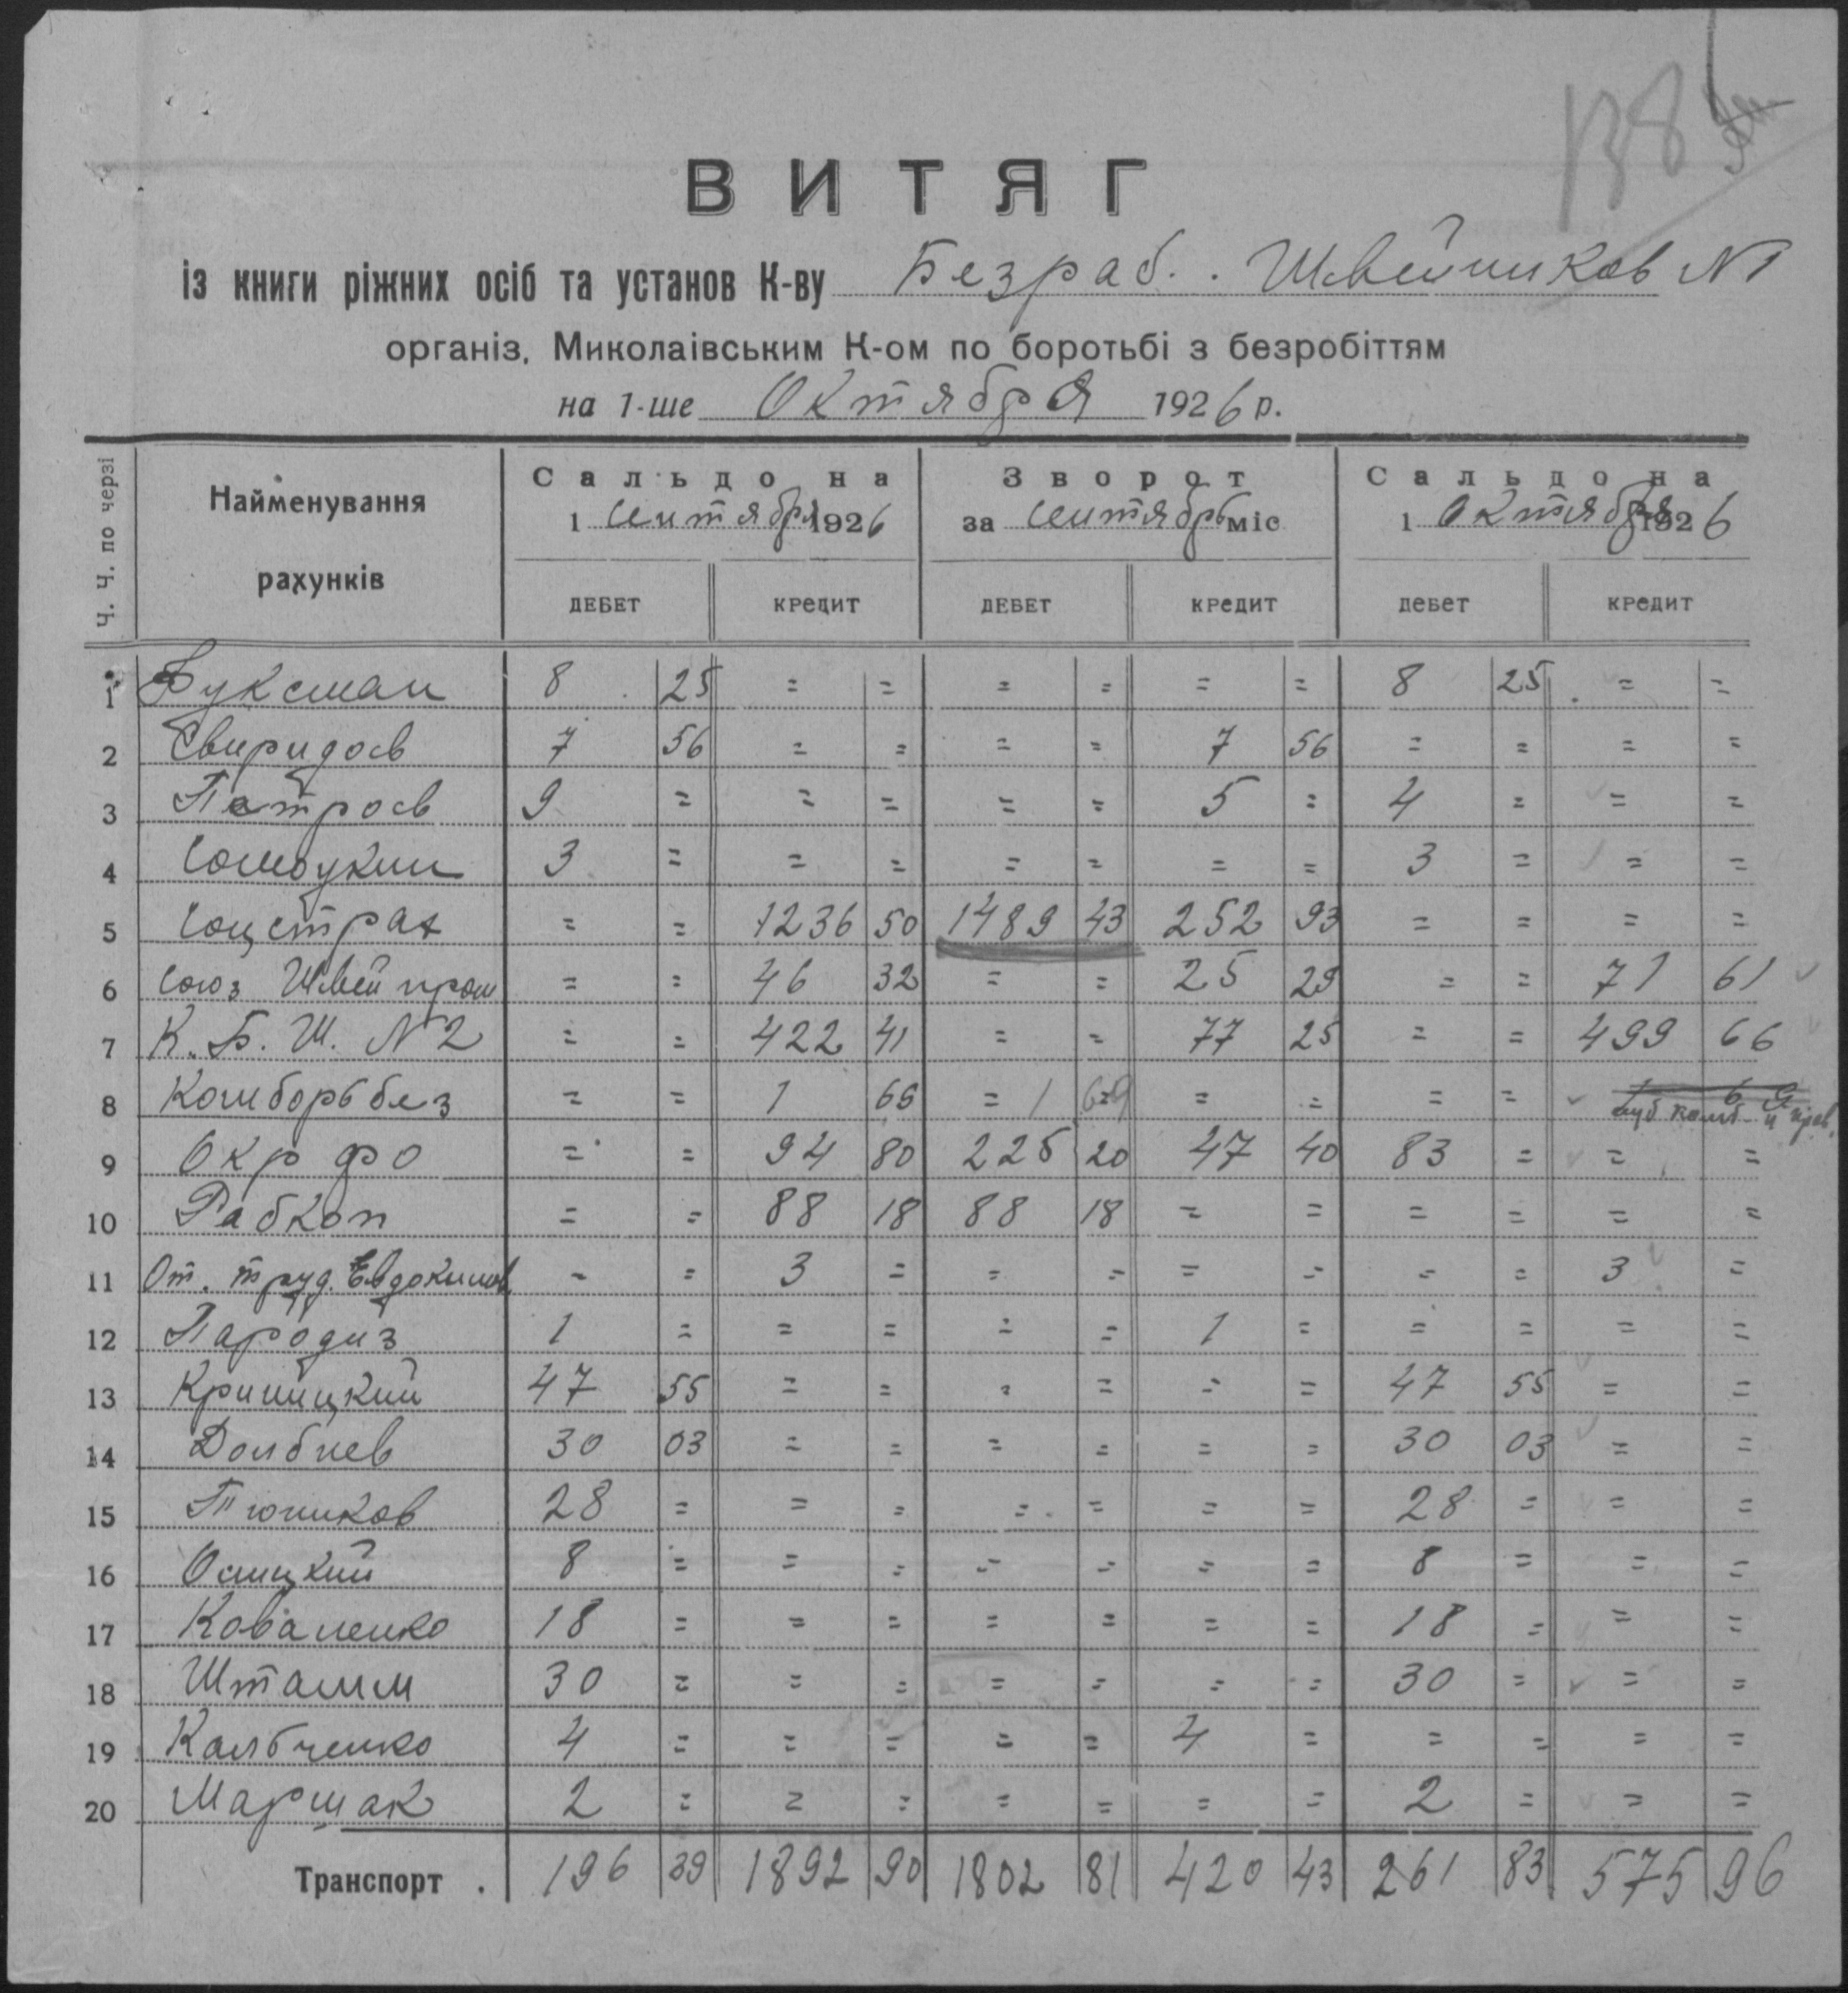 138
ВИТЯГ
із книги ріжних осіб та установ К-ву Безраб. Швейников N1
організ, Миколаівським К-ом по боротьбі з безробіттям
на 1-ше Октября 1926 р.
Ч. Ч. по черзі
Найменування рахунків
Сальдо на 1 сентября 1926
Зворот за сентябрь міс
Сальдо на 1 Октября 1926
ДЕБЕТ КРЕДИТ ДЕБЕТ КРЕДИТ ДЕБЕТ КРЕДИТ
1 Буксман 8 25 = = = = = = 8 25 = =
2 Свиридов 7 56 = = = = 7 56 = = = =
3 Петров 9 = = = = = 5 = 4 = = =
4 3 = = = = = = = 3 = = =
5 Соцстрах = = 1236 50 1489 43 252 93 = = = =
6 Союз Швейпром = = 46 32 = = 25 29 = = 71 61
7 К. Б. Ш. N2 = = 422 41 = = 77 25 = = 499 66
8 Комборьбез = = 1 69 = 1 69 = = = =
9 Окрфо = = 94 80 225 20 47 40 83 = = =
10 Рабкоп = = 88 18 88 18 = = = = = =
11 От. труд. Евдокимов = = 3 = = = = = = = 3 =
12 Пародиз 1 = = = = = 1 = = = = =
13 Криницкий 47 55 = = = = = = 47 55 = =
14 Долбнев 30 03 = = = = = = 30 03 = =
15 Тюников 28 = = = = = = = 28 = = =
16 Осицкий 8 = = = = = = = 8 = = =
17 Коваленко 18 = = = = = = = 18 = = =
18 Штамм 30 = = = = = = = 30 = = =
19 Кольченко 4 = = = = = 4 = = = = =
20 Маршак 2 = = = = = = = 2 = = =
Транспорт . 196 39 1892 90 1802 81 420 43 261 83 575 96